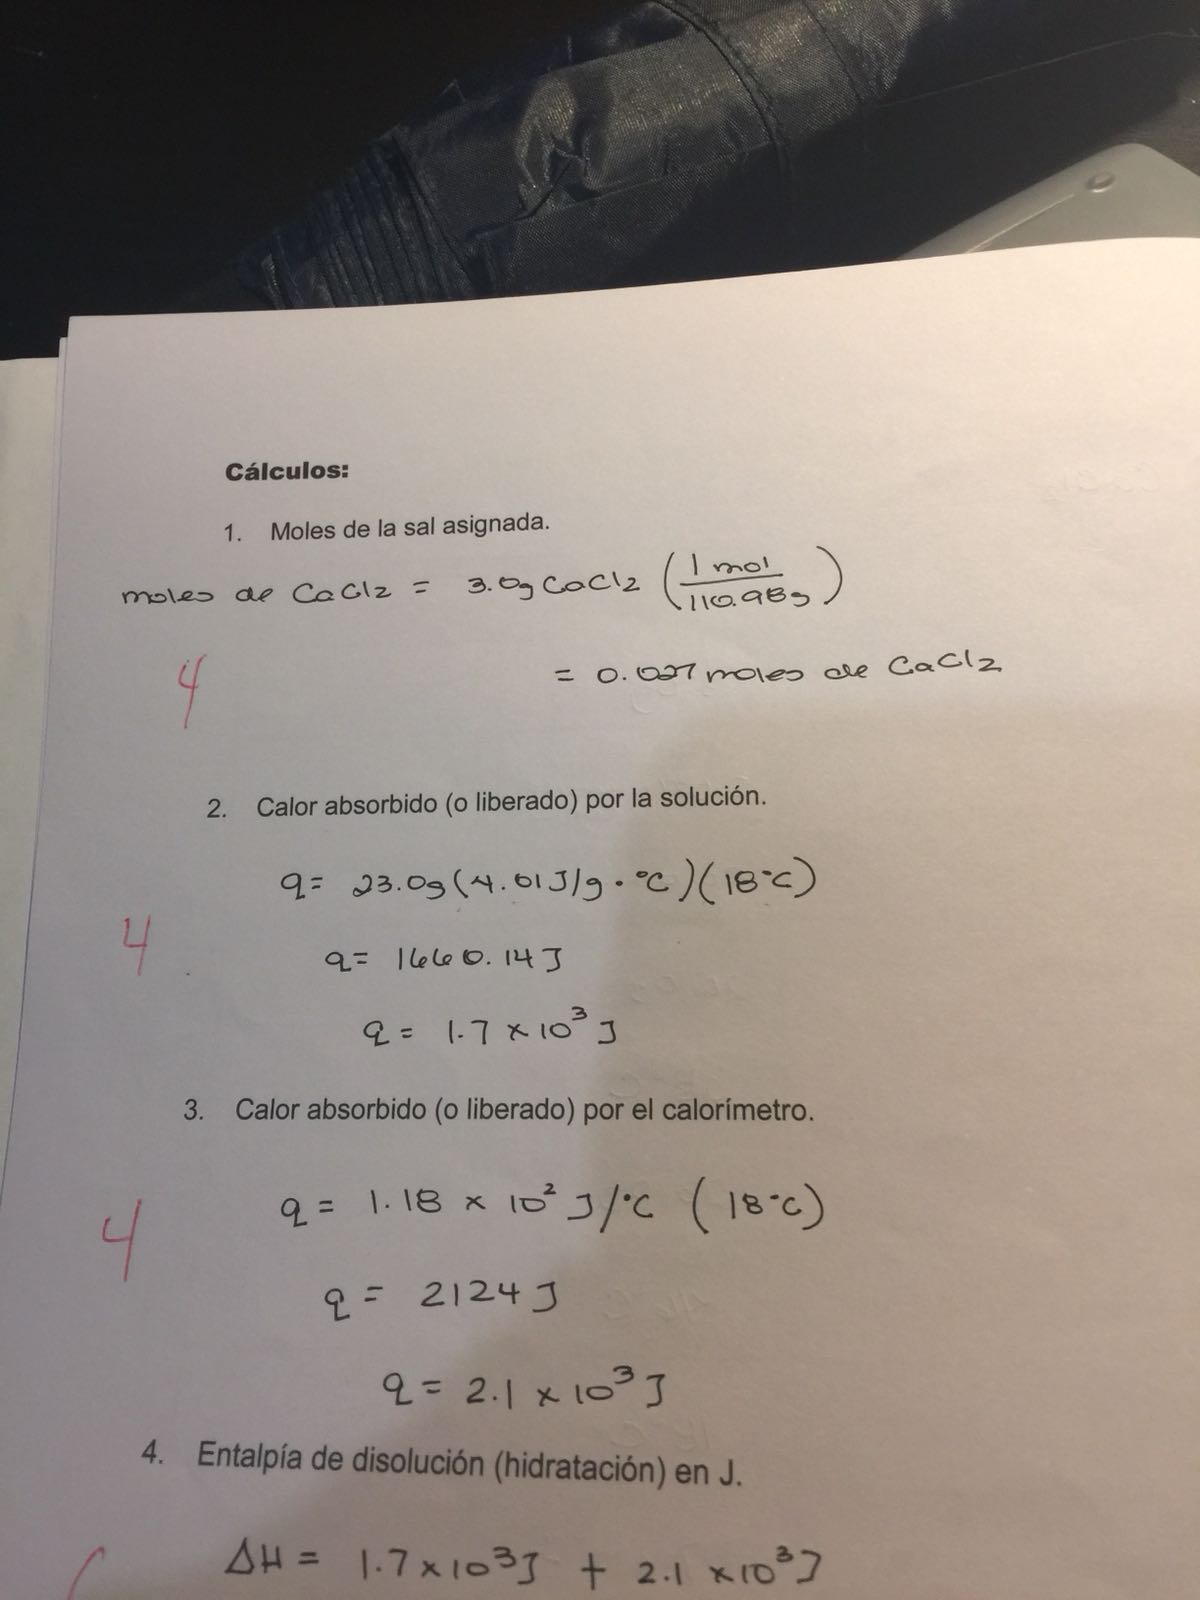 Cálculos:
1. Moles de la sal asignada.
moles de CaCl2 = 3.0g CaCl2 (1 mol / 110.98g)
= 0.027 moles de CaCl2
4
2. Calor absorbido (o liberado) por la solución.
q= 23.0g (4.01J/g·°C)(18°C)
4
q= 1660.14J
q = 1.7 x 10³ J
3. Calor absorbido (o liberado) por el calorímetro.
q = 1.18 x 10² J/°C (18°C)
4
q = 2124J
q = 2.1 x 10³J
4. Entalpía de disolución (hidratación) en J.
ΔH = 1.7x10³J + 2.1 x10³J